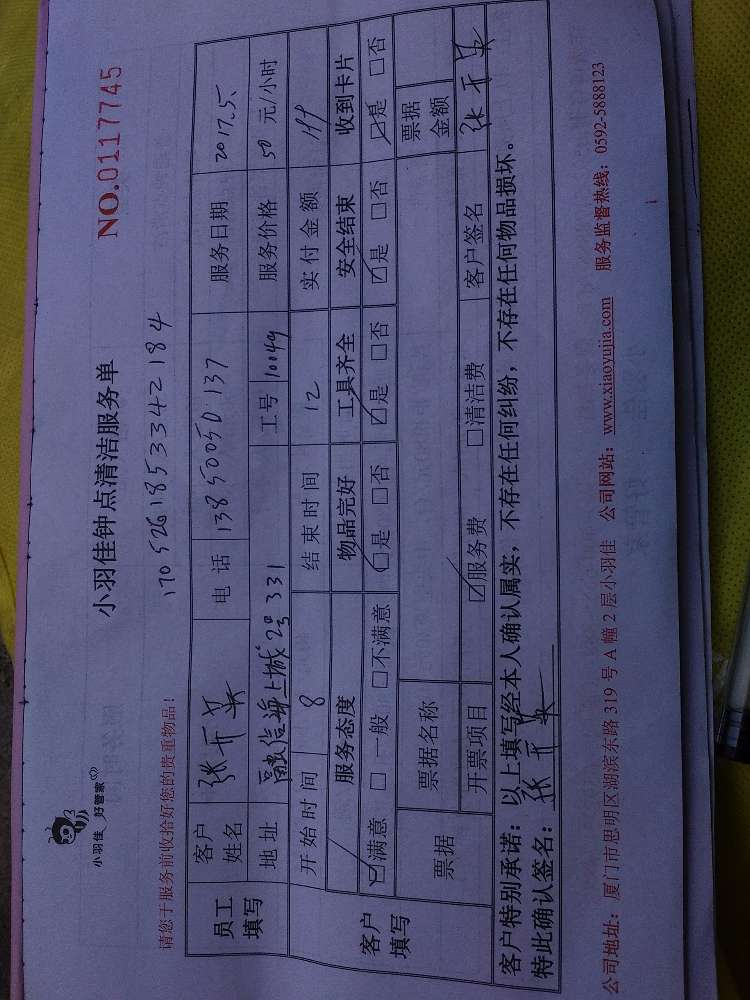 小羽佳 好管家
小羽佳钟点清洁服务单
NO.0117745
1705261853342184
请您于服务前收拾好您的贵重物品!
员工填写
客户姓名 张亓英 电话 13850050137 服务日期 2017.5.
地址 融信海上城2号331 工号 10049 服务价格 50 元/小时
开始时间 8 结束时间 12 实付金额 199
客户填写
服务态度 物品完好 工具齐全 安全结束 收到卡片
☑满意 □一般 □不满意 ☑是 □否 ☑是 □否 ☑是 □否 ☑是 □否
票据 票据名称 票据金额
开票项目 ☑服务费 □清洁费 客户签名 张亓英
客户特别承诺:以上填写经本人确认属实,不存在任何纠纷,不存在任何物品损坏。
特此确认签名:张亓英
公司地址:厦门市思明区湖滨东路 319 号 A 幢 2 层小羽佳 公司网站:www.xiaoyujia.com 服务监督热线:0592-5888123